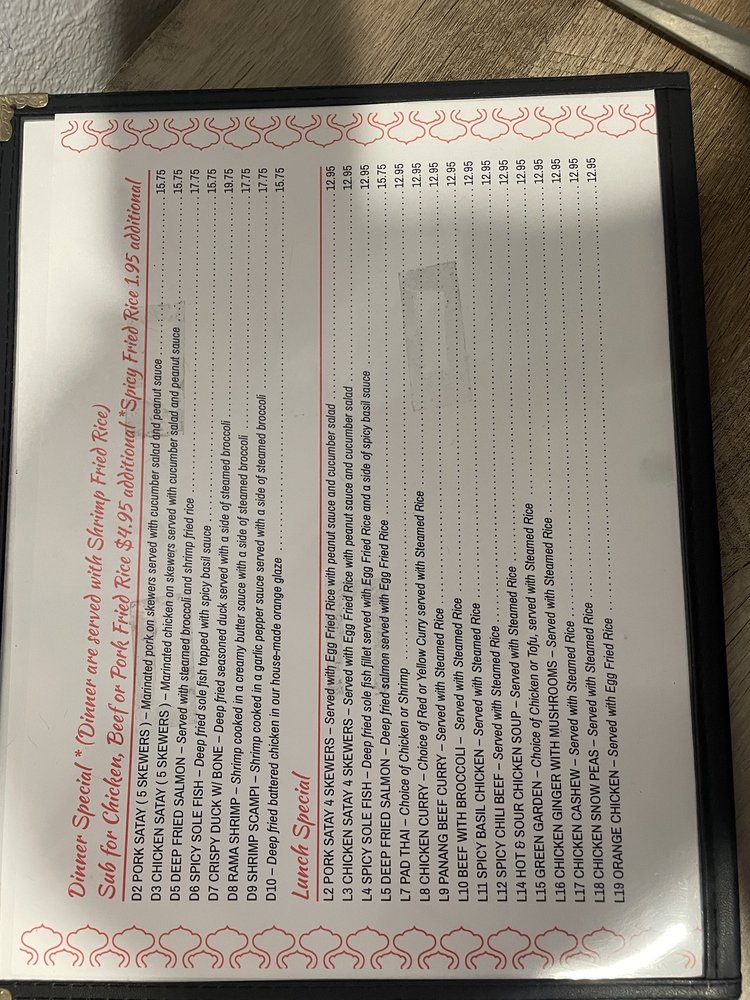 Dinner Special * (Dinner are served with Shrimp Fried Rice)
Sub for Chicken, Beef or Pork Fried Rice $4.95 additional *Spicy Fried Rice 1.95 additional
D2 PORK SATAY ( 5 SKEWERS ) – Marinated pork on skewers served with cucumber salad and peanut sauce 15.75
D3 CHICKEN SATAY ( 5 SKEWERS ) – Marinated chicken on skewers served with cucumber salad and peanut sauce 15.75
D5 DEEP FRIED SALMON – Served with steamed broccoli and shrimp fried rice 17.75
D6 SPICY SOLE FISH – Deep fried sole fish topped with spicy basil sauce 15.75
D7 CRISPY DUCK W/ BONE – Deep fried seasoned duck served with a side of steamed broccoli 19.75
D8 RAMA SHRIMP – Shrimp cooked in a creamy butter sauce with a side of steamed broccoli 17.75
D9 SHRIMP SCAMPI – Shrimp cooked in a garlic pepper sauce served with a side of steamed broccoli 17.75
D10 – Deep fried battered chicken in our house-made orange glaze 15.75
Lunch Special
L2 PORK SATAY 4 SKEWERS – Served with Egg Fried Rice with peanut sauce and cucumber salad 12.95
L3 CHICKEN SATAY 4 SKEWERS – Served with Egg Fried Rice with peanut sauce and cucumber salad 12.95
L4 SPICY SOLE FISH – Deep fried sole fish fillet served with Egg Fried Rice and a side of spicy basil sauce 12.95
L5 DEEP FRIED SALMON – Deep fried salmon served with Egg Fried Rice 15.75
L7 PAD THAI – Choice of Chicken or Shrimp 12.95
L8 CHICKEN CURRY – Choice of Red or Yellow Curry served with Steamed Rice 12.95
L9 PANANG BEEF CURRY – Served with Steamed Rice 12.95
L10 BEEF WITH BROCCOLI – Served with Steamed Rice 12.95
L11 SPICY BASIL CHICKEN – Served with Steamed Rice 12.95
L12 SPICY CHILI BEEF – Served with Steamed Rice 12.95
L14 HOT & SOUR CHICKEN SOUP – Served with Steamed Rice 12.95
L15 GREEN GARDEN – Choice of Chicken or Tofu, served with Steamed Rice 12.95
L16 CHICKEN GINGER WITH MUSHROOMS – Served with Steamed Rice 12.95
L17 CHICKEN CASHEW – Served with Steamed Rice 12.95
L18 CHICKEN SNOW PEAS – Served with Steamed Rice 12.95
L19 ORANGE CHICKEN – Served with Egg Fried Rice 12.95